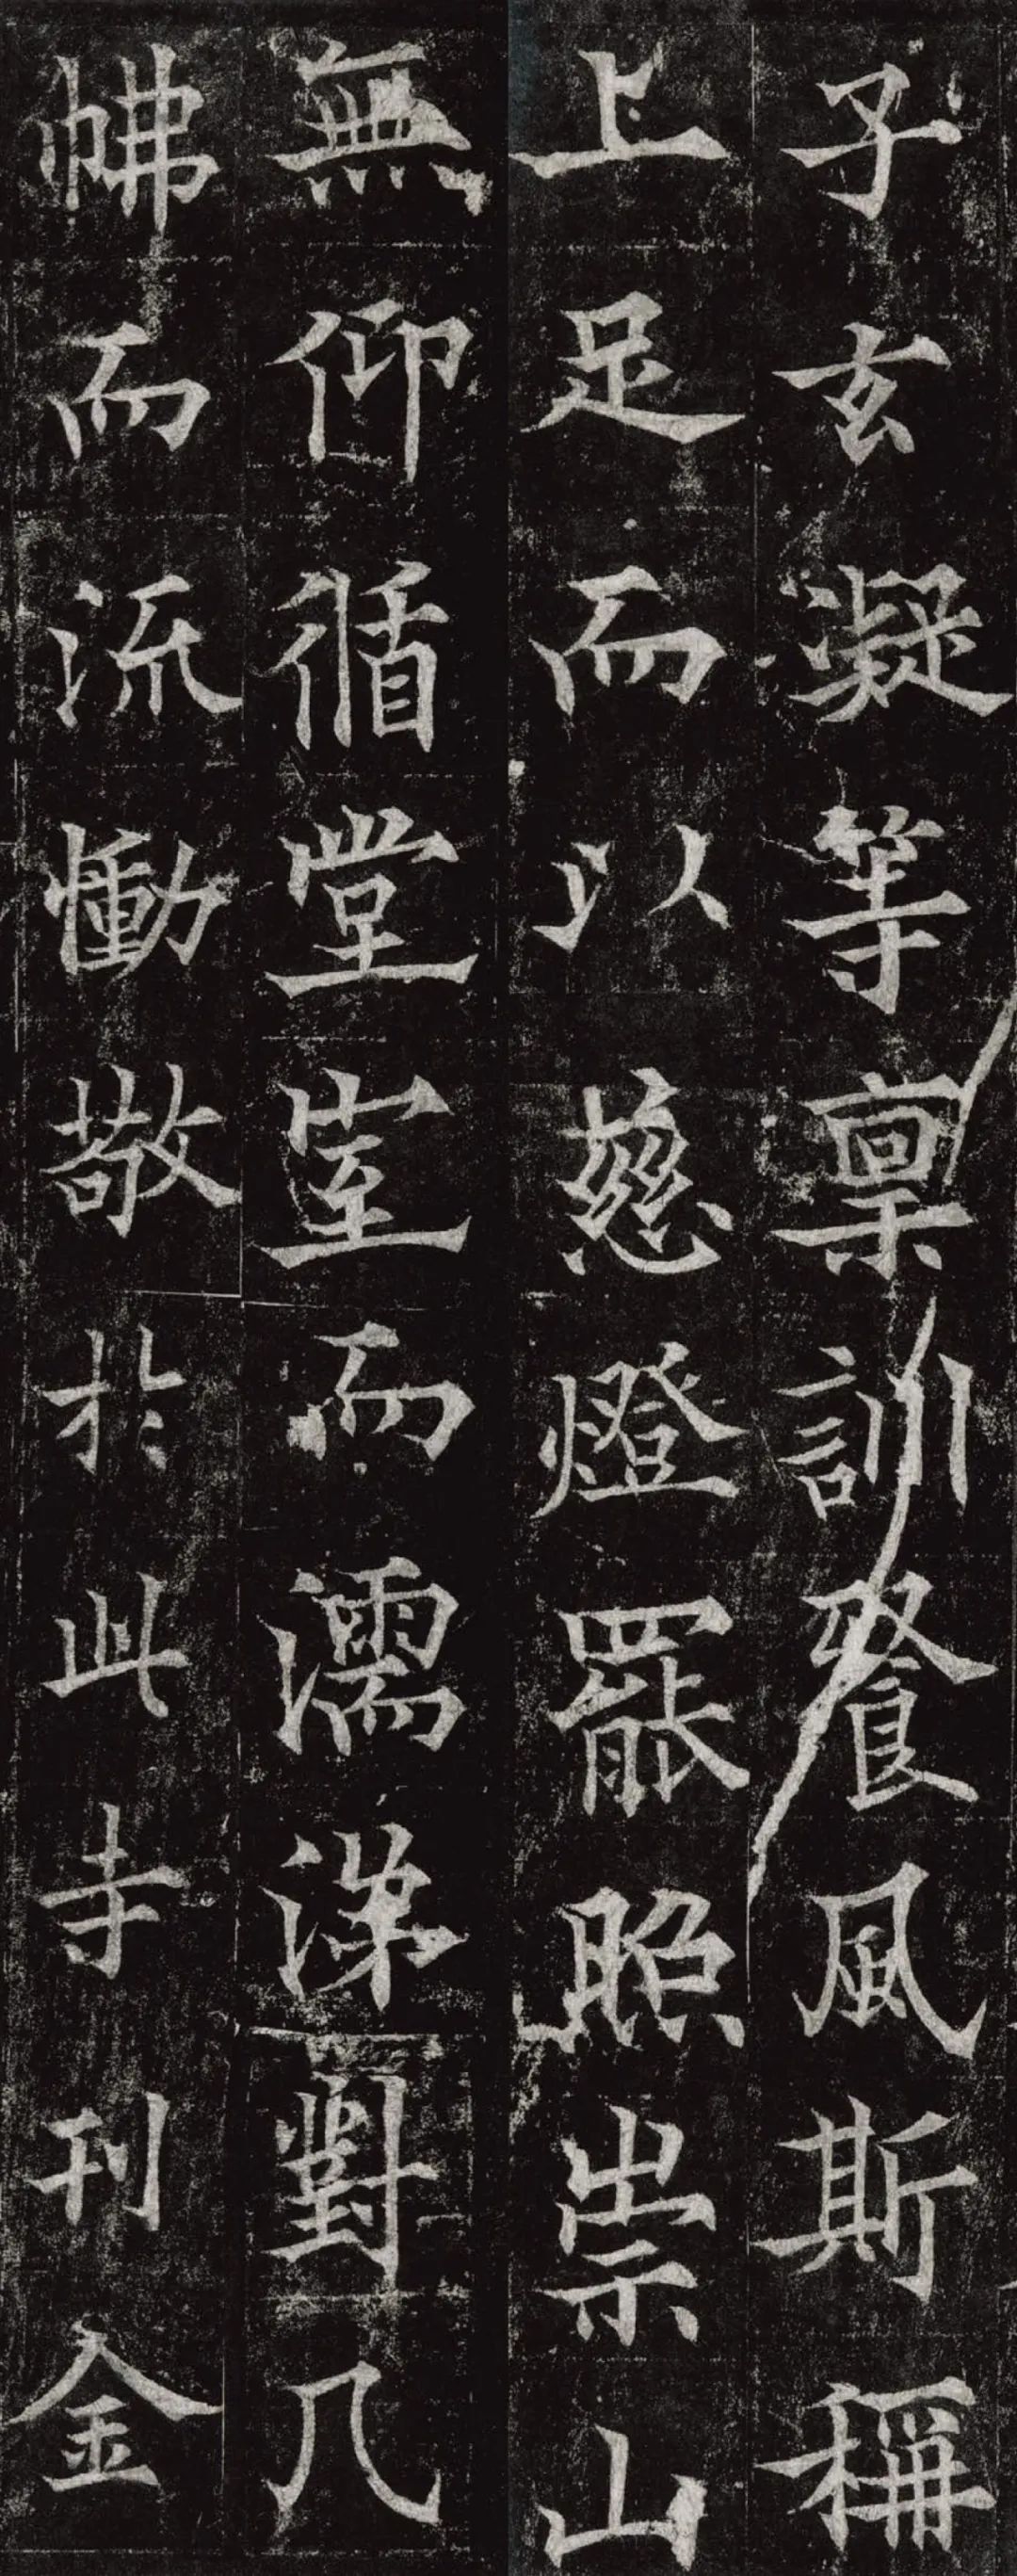 子玄凝等禀訓飡風斯稱
上足而以慈燈罷照崇山
無仰循堂室而濡涕對几
怫而流慟敬於此寺刊金